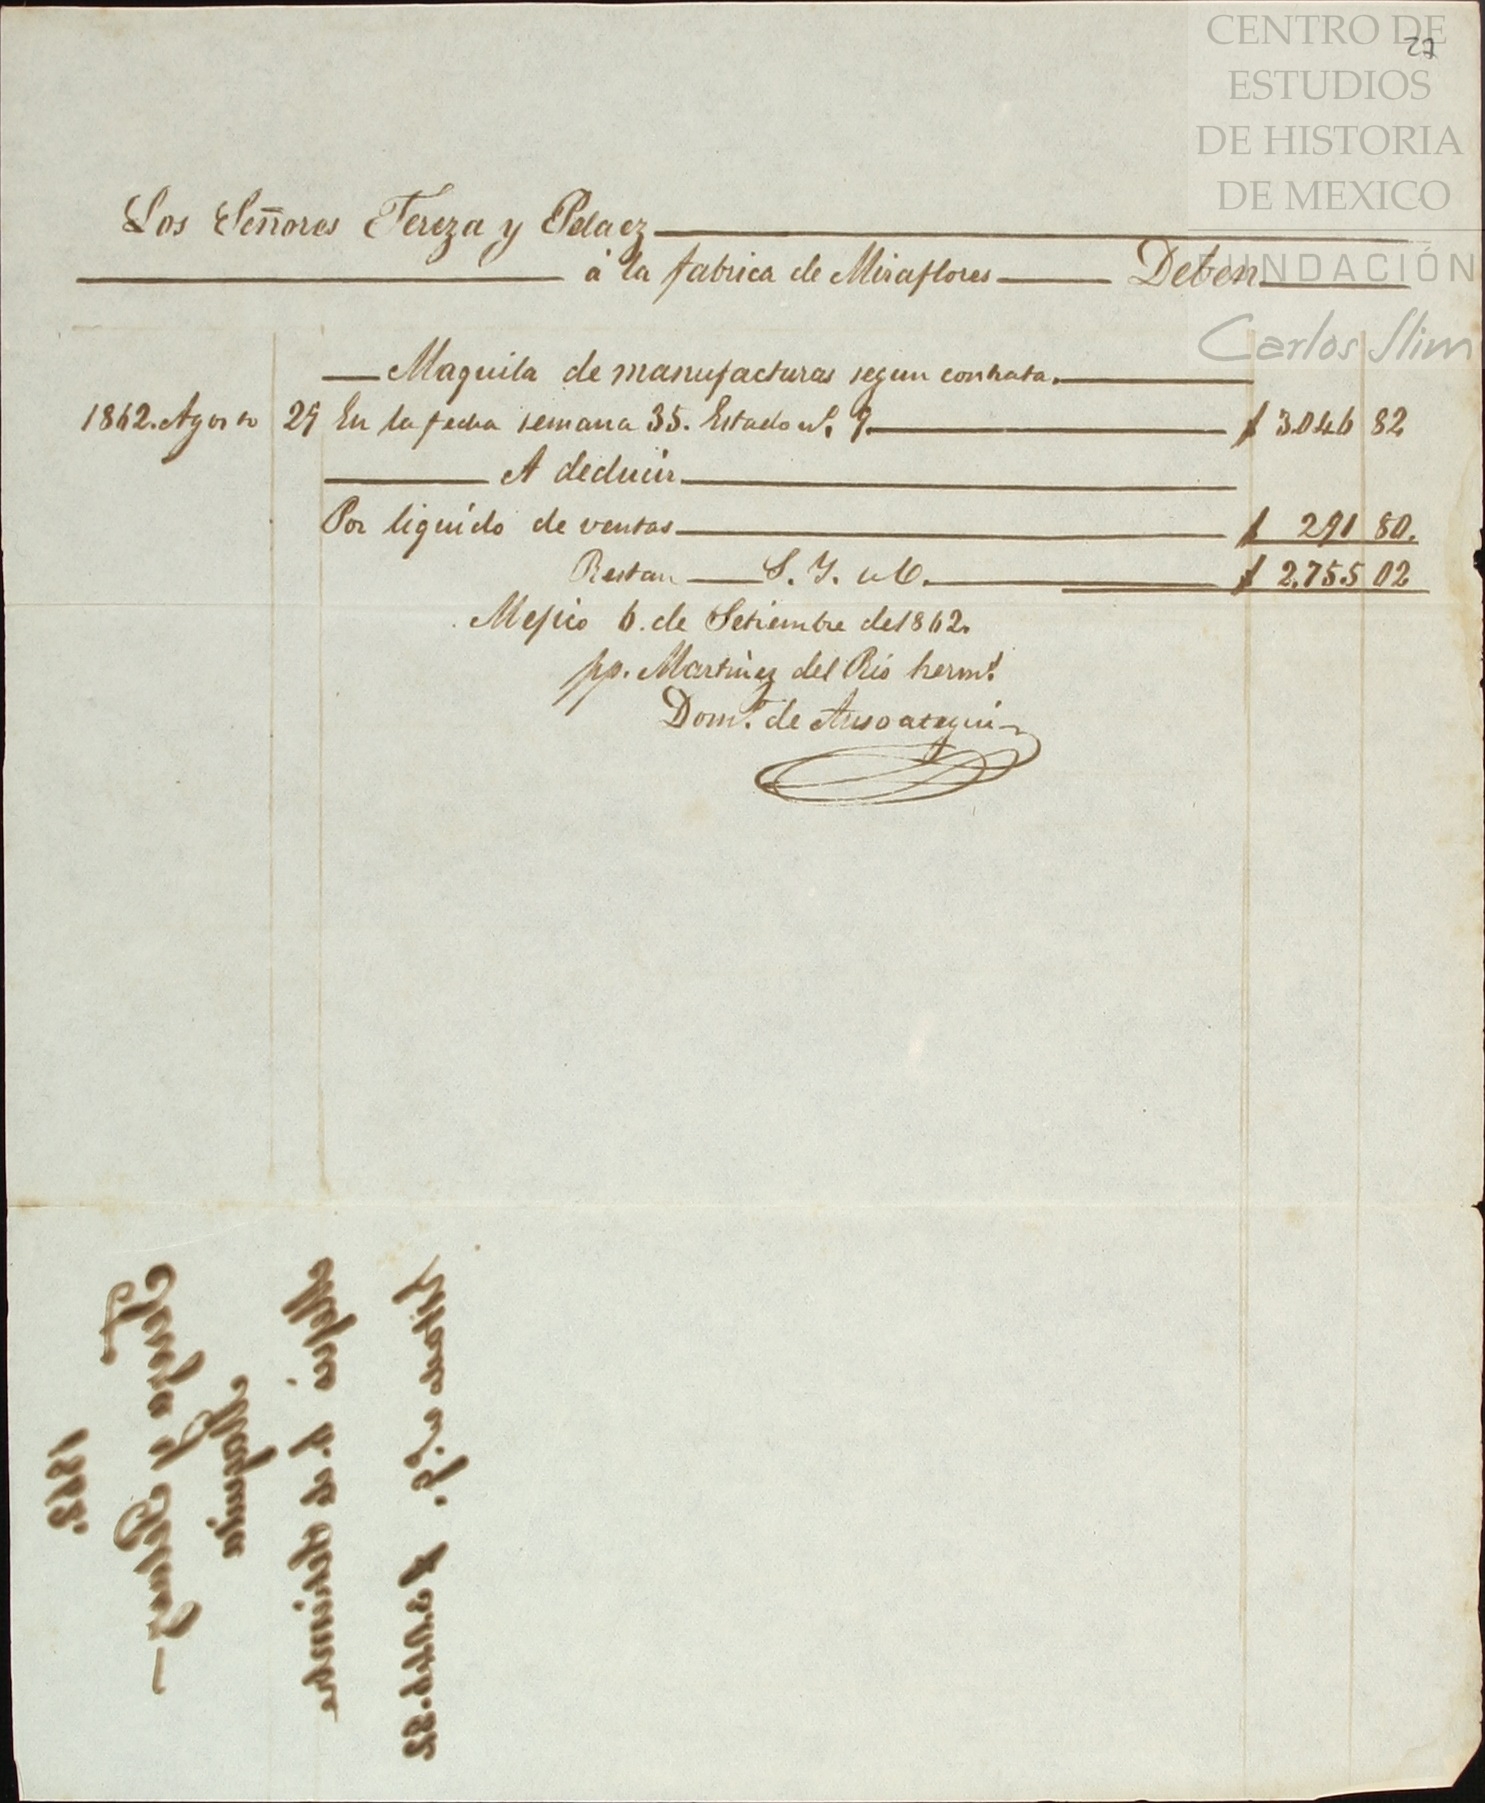 CENTRO DE
ESTUDIOS
DE HISTORIA
DE MEXICO
FUNDACIÓN
Carlos Slim
27
Los Señores Tereza y Pelaez
á la fabrica de Miraflores Deben
Maquila de manufacturas segun contrata.
1862. Agosto 29 En la fecha semana 35. Estado nº. 9. $ 3.046 82
A deducir
Por liquido de ventas $ 291 80.
Restan S. Y. u O. $ 2.755 02
Mejico 6. de Setiembre de 1862.
pp. Martinez del Rio hermˢ
Domº. de Ansoategui
1862.
Tereza y Pelaez
Maquila
Mejico 6. de Setiembre
Estado nº. 9. $ 3.046.82